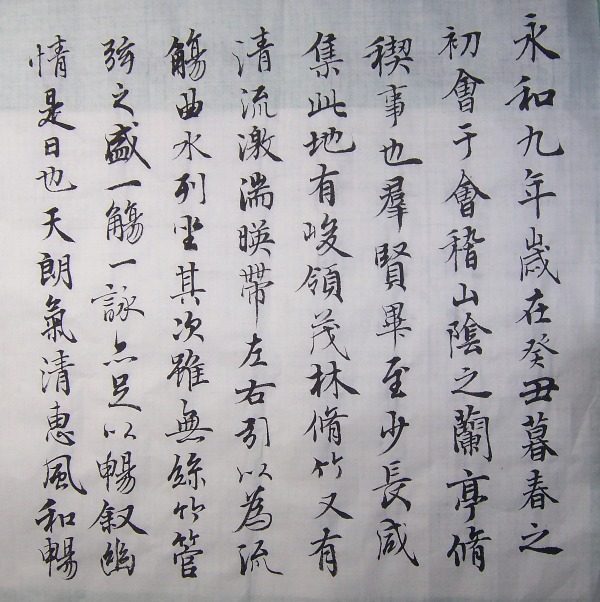 永和九年歲在癸丑暮春之
初會于會稽山陰之蘭亭脩
稧事也羣賢畢至少長咸
集此地有峻領茂林脩竹又有
清流激湍暎帶左右引以為流
觴曲水列坐其次雖無絲竹管
弦之盛一觴一詠亦足以暢叙幽
情是日也天朗氣清惠風和暢